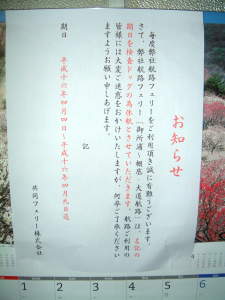 お知らせ
毎度弊社航路フェリーをご利用頂き誠に有難うございます。
さて、弊社航路フェリー「御所浦～棚底、大道航路」は、左記の
期日を検査ドッグの為休航とさせていただきます。航路ご利用の
皆様には大変ご迷惑をおかけいたしますが、何卒ご了承ください
ますようお願い申しあげます。
記
期日 平成十六年四月四日～平成十六年四月九日迄
共同フェリー株式会社
1 2 3 4 5 6